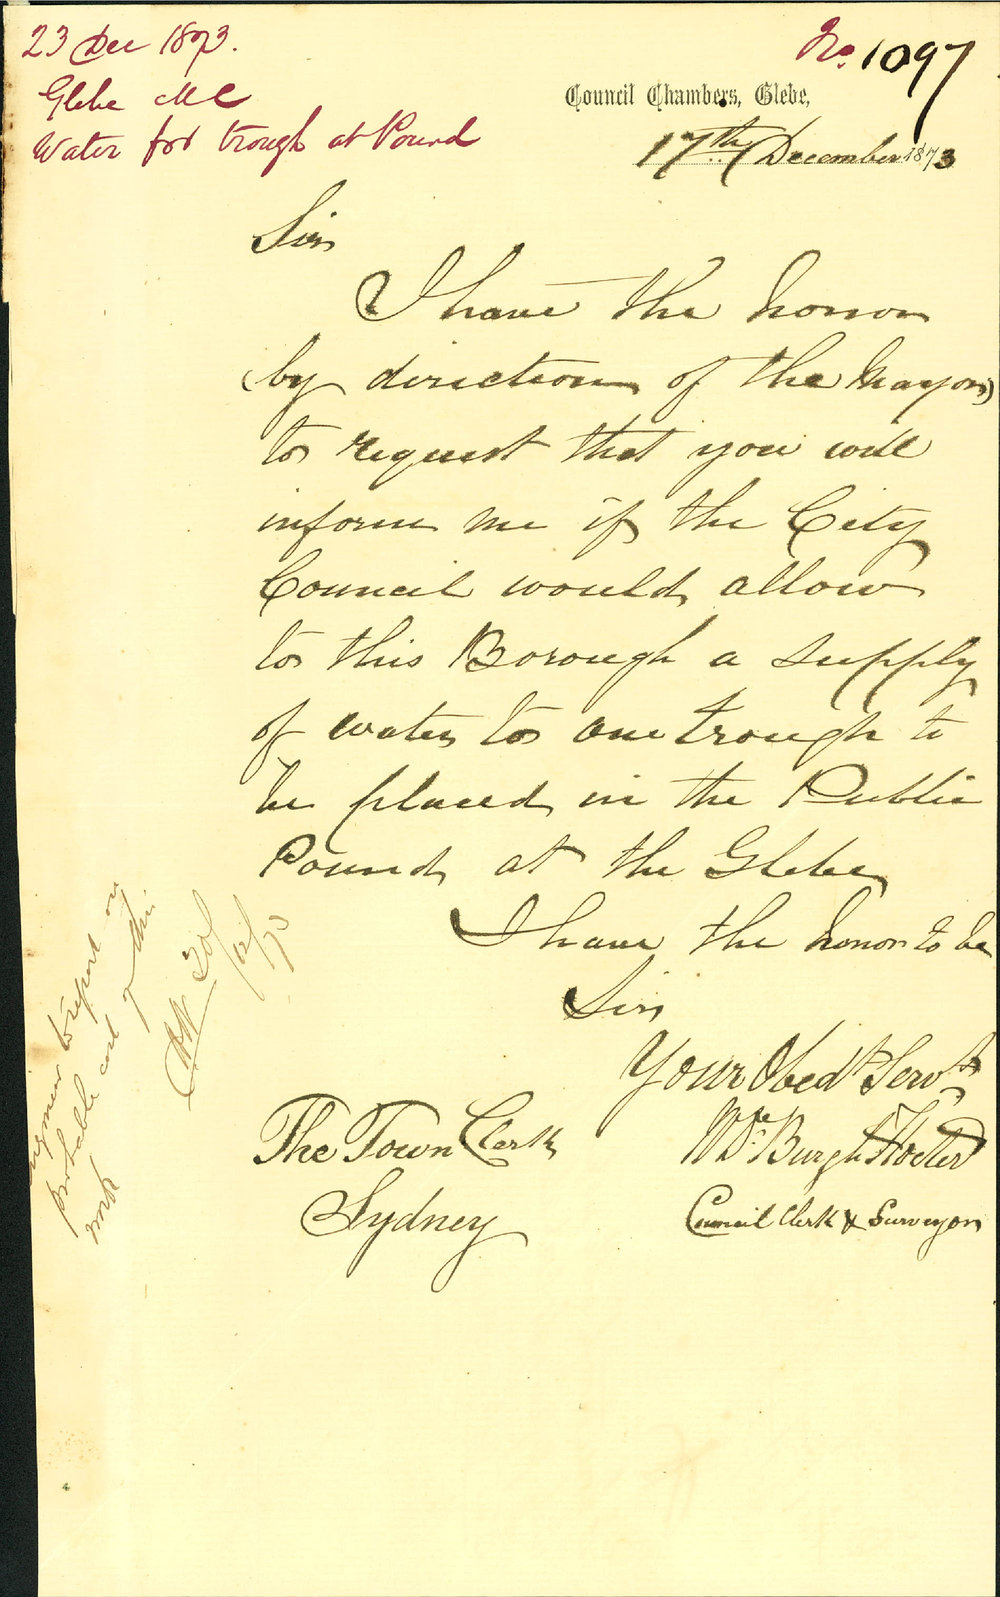 23 Dec 1873.
Glebe MC
Water for trough at Pound
No. 1097
Council Chambers, Glebe,
17th December 1873
Sir
I have the honor
(by direction of the Mayor)
to request that you will
inform me if the City
Council would allow
to this Borough a supply
of water to one trough to
be placed in the Public
Pound at the Glebe
I have the honor to be
Sir
Your Obedt Servt
Burgh
Council Clerk & Surveyor
The Town Clerk
Sydney
to report on
probable cost of this
work
20/12/73